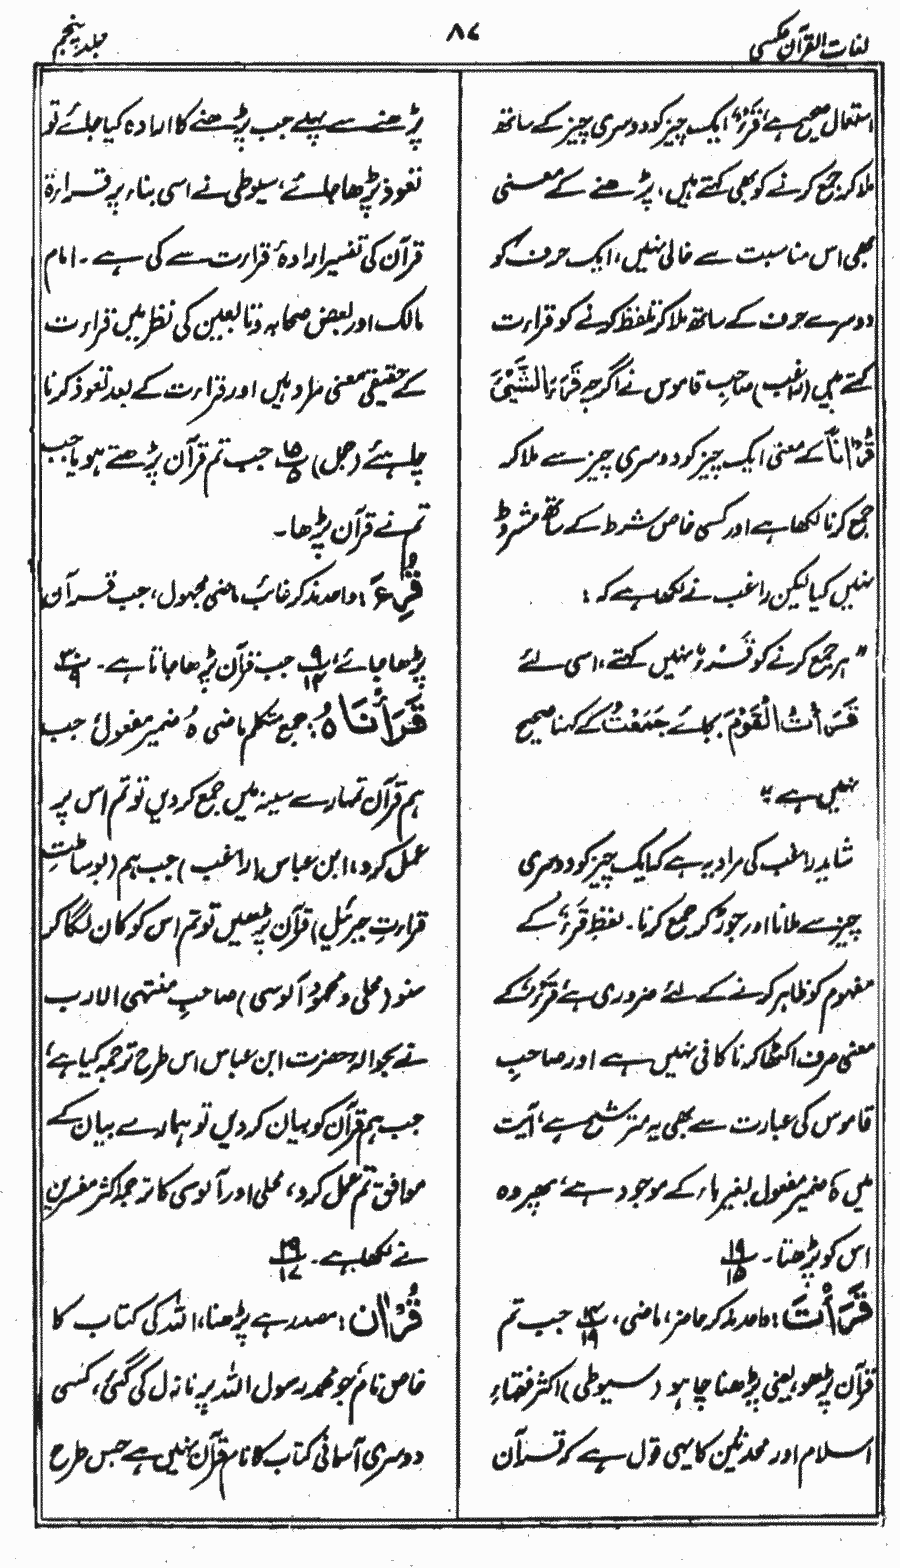 لغات القرآن عکسی
۸۷
جلد پنجم
استعمال صحیح ہے، قَرَءَ، ایک چیز کو دوسری چیز کے ساتھ
ملا کر جمع کرنے کو بھی کہتے ہیں، پڑھنے کے معنی
بھی اس مناسبت سے خالی نہیں، ایک حرف کو
دوسرے حرف کے ساتھ ملا کر تلفظ کرنے کو قراءت
کہتے ہیں (راغب) صاحبِ قاموس نے اگرچہ قَرَءَ الشَّیْئَ
قُرْاٰنًا کے معنی ایک چیز کو دوسری چیز سے ملا کر
جمع کرنا لکھا ہے اور کسی خاص شرط کے ساتھ مشروط
نہیں کیا لیکن راغب نے لکھا ہے کہ :
" ہر جمع کرنے کو قَرْءٌ نہیں کہتے، اسی لئے
قَرَأْتُ الْقَوْمَ بجائے جَمَعْتُ کے کہنا صحیح
نہیں ہے "
شاید راغب کی مراد یہ ہے کہ ایک چیز کو دوسری
چیز سے ملانا اور جوڑ کر جمع کرنا۔ لفظِ قَرَءَ، کے
مفہوم کو ظاہر کرنے کے لئے ضروری ہے، قَرَءَ، کے
معنی صرف اکٹھا کرنا کافی نہیں ہے اور صاحبِ
قاموس کی عبارت سے بھی یہ مترشح ہے، آیت
میں ہٗ ضمیر مفعول بغیر باء کے موجود ہے، پھر وہ
اس کو پڑھتا۔ ۱۹/۱۵
قَرَأْتَ : واحد مذکر حاضر، ماضی، ۱۴/۱۹ جب تم
قرآن پڑھو، یعنی پڑھنا چاہو (سیوطی) اکثر فقہاءِ
اسلام اور محدثین کا یہی قول ہے کہ قرآن
پڑھنے سے پہلے جب پڑھنے کا ارادہ کیا جائے تو
تعوذ پڑھا جائے، سیوطی نے اسی بناء پر قراءۃ
قرآن کی تفسیر ارادۂ قرارت سے کی ہے۔ امام
مالک اور بعض صحابہ و تابعین کی نظر میں قراءت
کے حقیقی معنی مراد ہیں اور قراءت کے بعد تعوذ کرنا
چاہئے (جمل) ۱۵/۵ جب تم قرآن پڑھتے ہو یا جب
تم نے قرآن پڑھا۔
قُرِءَ : واحد مذکر غائب ماضی مجہول، جب قرآن
پڑھا جائے، ۹/۱۴ جب قرآن پڑھا جاتا ہے۔ ۳۰/۹
قَرَأْنَاہُ : جمع متکلم ماضی ہُ ضمیر مفعول، جب
ہم قرآن تمہارے سینہ میں جمع کردیں تو تم اس پر
عمل کرو، ابن عباس (راغب) جب ہم (بوساطتِ
قرارتِ جبرئیل) قرآن پڑھیں تو تم اس کو کان لگا کر
سنو (محلی و محمود آلوسی) صاحبِ منتہی الارب
نے بحوالۂ حضرت ابن عباس اس طرح ترجمہ کیا ہے،
جب ہم قرآن کو بیان کردیں تو ہمارے بیان کے
موافق تم عمل کرو، محلی اور آلوسی کا ترجمہ اکثر مفسرین
نے لکھا ہے۔ ۲۹/۱۷
قُرْاٰن : مصدر ہے پڑھنا، اللہ کی کتاب کا
خاص نام جو محمد رسول اللہ پر نازل کی گئی، کسی
دوسری آسمانی کتاب کا نام قرآن نہیں ہے جس طرح